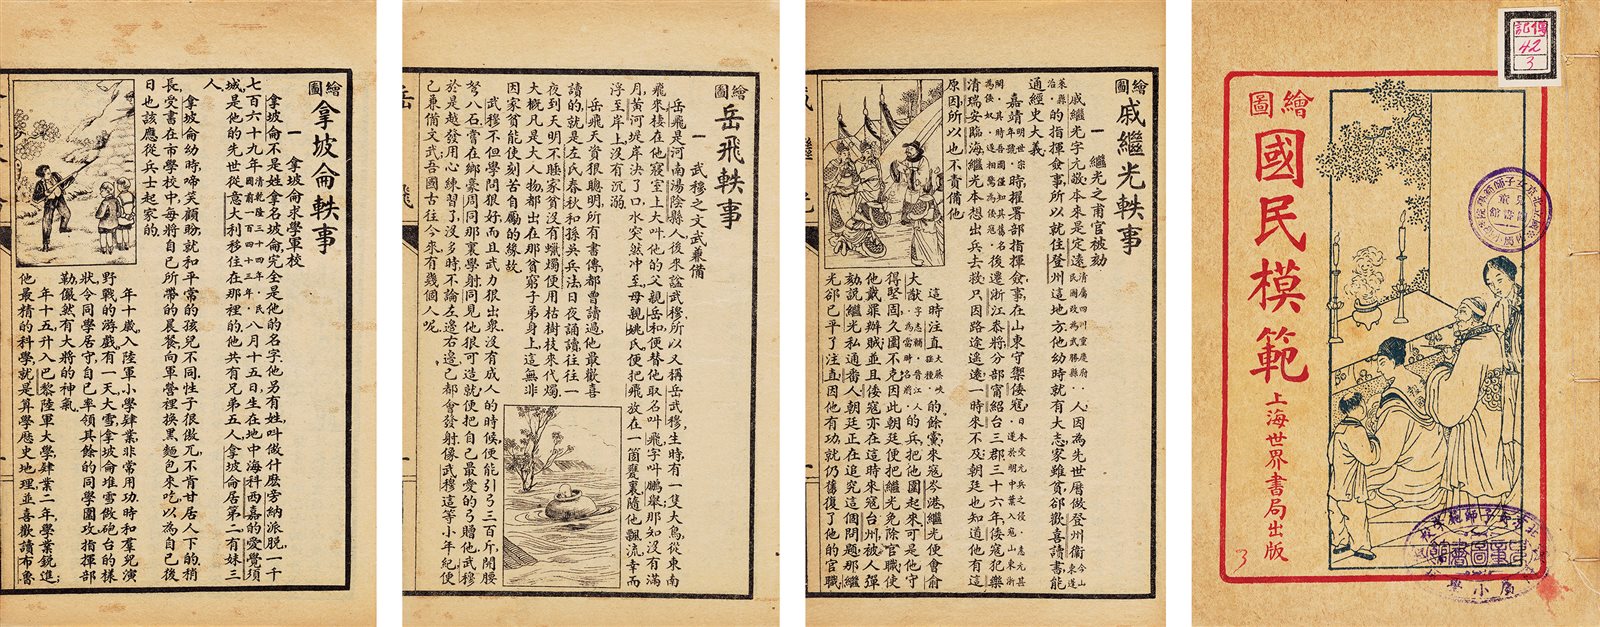 傳記
42
3
繪圖
國民模範
上海世界書局出版
3
繪圖
戚繼光軼事
一　繼光之甫官被劾
戚繼光字元敬本來是定遠
人因為先世曆做登州衞
的指揮僉事所以就住登州這地方他幼時就有大志家雖貧卻歡喜讀書能
通經史大義
嘉靖
時擢署部指揮僉事在山東守禦倭寇
後遷浙江叅將分部甯紹台三郡三十六年倭寇犯樂
清瑞安臨海繼光本想出兵去救只因路途遙遠一時來不及朝廷也知道他有這
原因所以也不責備他
這時汪直
的餘黨來寇岑港繼光便會俞
大猷
的兵把他圍起來可是他守
得堅固久圍不克因此朝廷便把繼光免除官職使
他戴罪辦賊並且倭寇亦在這時來寇台州被人彈
劾說繼光私通番人朝廷正在追究這個問題那繼
光卻已平了汪直因他有功就仍舊復了他的官職
繪圖
岳飛軼事
一　武穆之文武兼備
岳飛是河南湯陰縣人後來諡武穆所以又稱岳武穆生時有一隻大鳥從東南
飛來棲在他寢室上大叫他的父親岳和便替他取名叫飛字叫鵬舉那知沒有滿
月黃河堤岸決了口水突然冲至母親姚氏便把飛放在一箇甕裏隨他飄流幸而
浮至岸上沒有沉溺
岳飛天資狠聰明所有書傳都曾讀過他最歡喜
讀的就是左氏春秋和孫吳兵法日夜誦讀往往一
夜到天明不睡家貧沒有蠟燭便用枯樹枝來代燭
大概凡是大人物都出在那貧窮子弟身上這無非
因家貧能使刻苦自勵的緣故
武穆不但學問狠好而且武力很出衆沒有成人的時候便能引弓三百斤開腰
弩八石嘗在鄉豪周同那裏學射同見他很可造就便把自己最愛的弓贈他武穆
於是越發用心練習了沒多時不論左邊右邊已都會發射像武穆這等小年紀便
已兼備文武吾國古往今來有幾個人呢
繪圖
拿坡侖軼事
一　拿坡侖求學軍校
拿坡侖不是姓拿名坡侖完全是他的名字他另有姓叫做什麼旁納派脫一千
七百六十九年
八月十五日生在地中海科西嘉的愛覺須
城是他的先世從意大利移往在那裡的他共有兄弟五人拿坡侖居第二有妹三
人
拿坡侖幼時啼笑顧盼就和平常的孩兒不同性子很傲兀不肯甘居人下的稍
長受書在市學校中每將自己所帶的晨餐向軍營裡換黑麵包來吃以為自己後
日也該應從兵士起家的
年十歲入陸軍小學肆業非常用功時和羣兒演
野戰的游戲有一天大雪拿坡侖堆雪做砲台的樣
狀令同學居守自己率領其餘的同學圍攻指揮部
勒儼然有大將的神氣
年十五升入巴黎陸軍大學肆業二年學業銳進
他最精的科學就是算學歷史地理並喜歡讀布魯